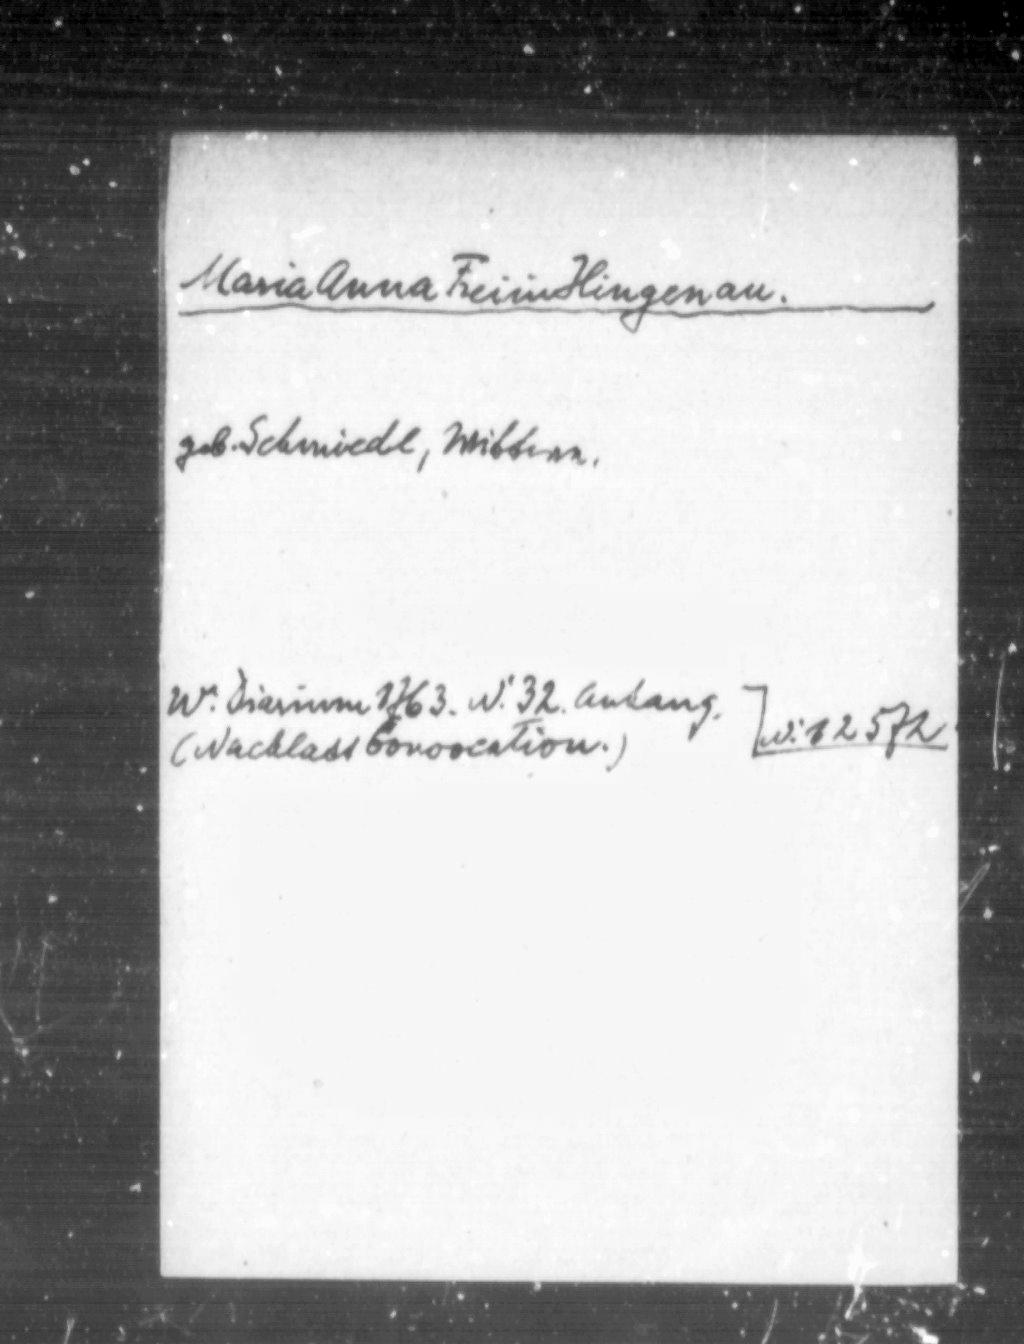 Maria Anna Freiin Hingenau.
geb. Schmiedl, Wittwe.
Wr. Diarium 1763. N: 32. Anhang.
(Nachlass Convocation.)
N: 12572